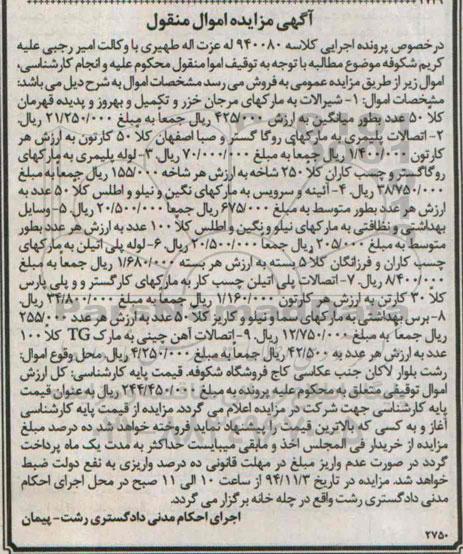 آگهی مزایده اموال منقول
درخصوص پرونده اجرایی کلاسه ۹۴۰۰۸۰ له عزت اله طهیری با وکالت امیر رجبی علیه
کریم شکوفه موضوع مطالبه با توجه به توقیف اموا منقول محکوم علیه و انجام کارشناسی،
اموال زیر از طریق مزایده عمومی به فروش می رسد مشخصات اموال به شرح دیل می باشد:
مشخصات اموال: ۱- شیرالات به مارکهای مرجان خزر و تکمیل و بهروز و پدیده قهرمان
کلا ۵۰ عدد بطور میانگین به ارزش ۴۲۵/۰۰۰ ریال جمعاً به مبلغ ۲۱/۲۵۰/۰۰۰ ریال.
۲- اتصالات پلیمری به مارکهای روگا گستر و صبا اصفهان کلا ۵۰ کارتون به ارزش هر
کارتون ۱/۴۰۰/۰۰۰ ریال جمعاً به مبلغ ۷۰/۰۰۰/۰۰۰ ریال. ۳- لوله پلیمری به مارکهای
روگاگستر و چسب کاران کلا ۲۵۰ شاخه به ارزش هر شاخه ۱۵۵/۰۰۰ ریال جمعاً به مبلغ
۳۸/۷۵۰/۰۰۰ ریال. ۴- آئینه و سرویس به مارکهای نگین و نیلو و اطلس کلا ۵۰ عدد به
ارزش هر عدد بطور متوسط به مبلغ ۶۷۵/۰۰۰ ریال جمعاً ۲۰/۵۰۰/۰۰۰ ریال. ۵- وسایل
بهداشتی و نظافتی به مارکهای نیلو و نگین و اطلس کلا ۱۰۰ عدد به ارزش هر عدد بطور
متوسط به مبلغ ۲۰۵/۰۰۰ ریال جمعاً ۲۰/۵۰۰/۰۰۰ ریال. ۶- لوله پلی اتیلن به مارکهای
چسب کاران و فرزانگان کلا ۵ بسته به ارزش هر بسته ۱/۶۸۰/۰۰۰ ریال جمعا به مبلغ
۸/۴۰۰/۰۰۰ ریال. ۷- اتصالات پلی اتیلن چسب کار به مارکهای کارگستر و و پلی پارس
کلا ۳۰ کارتن به ارزش هر کارتون ۱/۱۶۰/۰۰۰ ریال جمعاً به مبلغ ۳۴/۸۰۰/۰۰۰ ریال.
۸- برس بهداشتی به مارکهای سما و نیلو و کاریز کلا ۵۰ عدد به ارزش هر عدد ۲۵۵/۰۰۰
ریال جمعاً به مبلغ ۱۲/۷۵۰/۰۰۰ ریال. ۹- اتصالات آهن چینی به مارک TG کلا ۱۰۰
عدد به ارزش هر عدد به ۴۲/۵۰۰ ریال جمعاً به مبلغ ۴/۲۵۰/۰۰۰ ریال. محل وقوع اموال:
رشت بلوار لاکان جنب عکاسی کاج فروشگاه شکوفه. قیمت پایه کارشناسی: کل ارزش
اموال توقیفی متعلق به محکوم علیه پرونده به مبلغ ۲۴۴/۴۵۰/۰۰۰ ریال به عنوان قیمت
پایه کارشناسی جهت شرکت در مزایده اعلام می گردد. مزایده از قیمت پایه کارشناسی
آغاز و به کسی که بالاترین قیمت را پیشنهاد نماید فروخته خواهد شد ده درصد مبلغ
مزایده از خریدار فی المجلس اخذ و مابقی میبایست حداکثر به مدت یک ماه پرداخت
گردد در صورت عدم واریز مبلغ در مهلت قانونی ده درصد واریزی به نفع دولت ضبط
خواهد شد. مزایده در تاریخ ۹۴/۱۱/۳ از ساعت ۱۰ الی ۱۱ صبح در محل اجرای احکام
مدنی دادگستری رشت واقع در چله خانه برگزار می گردد.
اجرای احکام مدنی دادگستری رشت- پیمان
۲۷۵۰